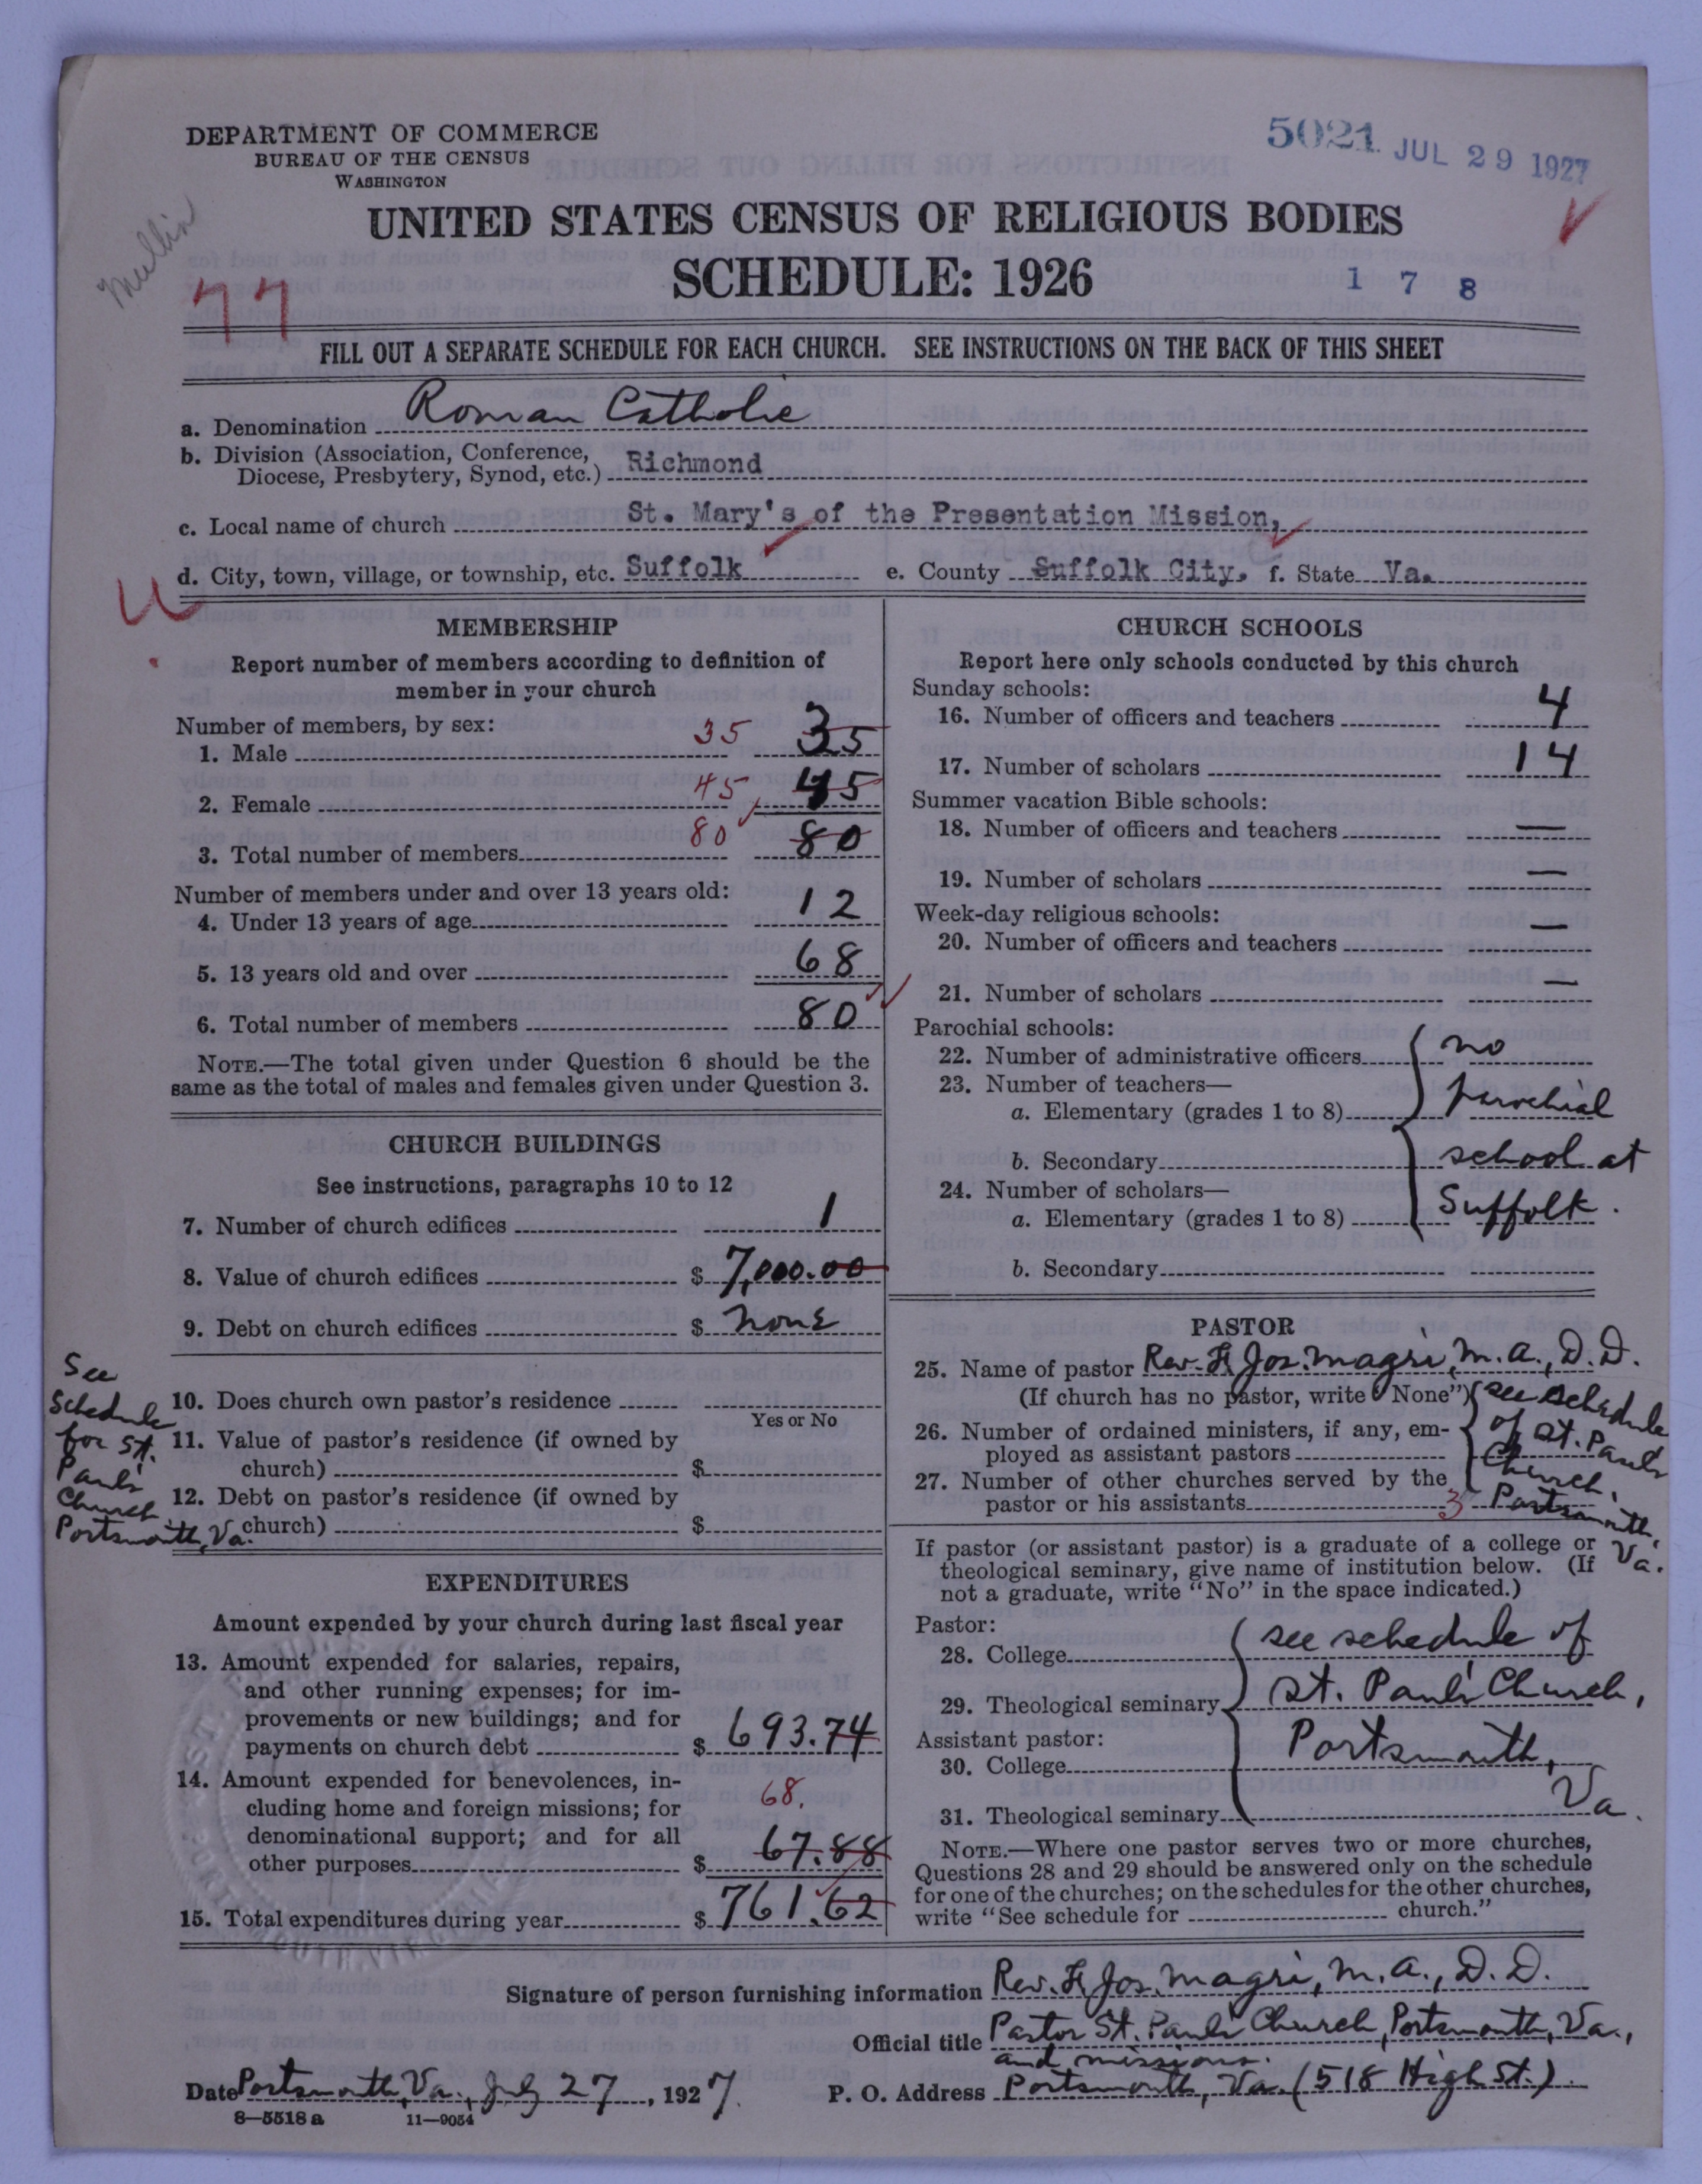 DEPARTMENT OF COMMERCE
BUREAU OF THE CENSUS
WASHINGTON
5021 JUL 29 1927
Mullin
UNITED STATES CENSUS OF RELIGIOUS BODIES
SCHEDULE: 1926
77
1 7 8
FILL OUT A SEPARATE SCHEDULE FOR EACH CHURCH. SEE INSTRUCTIONS ON THE BACK OF THIS SHEET
a. Denomination Roman Catholic
b. Division (Association, Conference,
Diocese, Presbytery, Synod, etc.) Richmond
c. Local name of church St. Mary's of the Presentation Mission,
d. City, town, village, or township, etc. Suffolk e. County Suffolk City. f. State Va.
MEMBERSHIP
Report number of members according to definition of
member in your church
Number of members, by sex:
1. Male 35 35
2. Female 45 45
3. Total number of members 80 80
Number of members under and over 13 years old:
4. Under 13 years of age 12
5. 13 years old and over 68
6. Total number of members 80
NOTE.—The total given under Question 6 should be the
same as the total of males and females given under Question 3.
CHURCH BUILDINGS
See instructions, paragraphs 10 to 12
7. Number of church edifices 1
8. Value of church edifices $ 7,000.00
9. Debt on church edifices $ none
See
Schedule
for St.
Paul's
Church
Portsmouth, Va.
10. Does church own pastor's residence
Yes or No
11. Value of pastor's residence (if owned by
church) $
12. Debt on pastor's residence (if owned by
church) $
EXPENDITURES
Amount expended by your church during last fiscal year
13. Amount expended for salaries, repairs,
and other running expenses; for im-
provements or new buildings; and for
payments on church debt $ 693.74
14. Amount expended for benevolences, in-
cluding home and foreign missions; for
denominational support; and for all
other purposes $ 68. 67.88
15. Total expenditures during year $ 761.62
CHURCH SCHOOLS
Report here only schools conducted by this church
Sunday schools:
16. Number of officers and teachers 4
17. Number of scholars 14
Summer vacation Bible schools:
18. Number of officers and teachers —
19. Number of scholars —
Week-day religious schools:
20. Number of officers and teachers —
21. Number of scholars —
Parochial schools:
22. Number of administrative officers no
23. Number of teachers—
a. Elementary (grades 1 to 8) parochial
b. Secondary school at
24. Number of scholars—
a. Elementary (grades 1 to 8) Suffolk.
b. Secondary
PASTOR
25. Name of pastor Rev. F. Jos. Magri, M.A., D.D.
(If church has no pastor, write "None")
26. Number of ordained ministers, if any, em-
ployed as assistant pastors
27. Number of other churches served by the
pastor or his assistants 3
see schedule
of St. Paul's
Church,
Portsmouth,
Va.
If pastor (or assistant pastor) is a graduate of a college or
theological seminary, give name of institution below. (If
not a graduate, write "No" in the space indicated.)
Pastor:
28. College see schedule of
29. Theological seminary St. Paul's Church,
Assistant pastor:
30. College Portsmouth,
31. Theological seminary Va.
NOTE.—Where one pastor serves two or more churches,
Questions 28 and 29 should be answered only on the schedule
for one of the churches; on the schedules for the other churches,
write "See schedule for church."
Signature of person furnishing information Rev. F. Jos. Magri, M.A., D.D.
Official title Pastor St. Paul's Church, Portsmouth, Va.,
and missions.
Date Portsmouth, Va., July 27, 1927. P. O. Address Portsmouth, Va. (518 High St.)
8—5518 a 11—9054